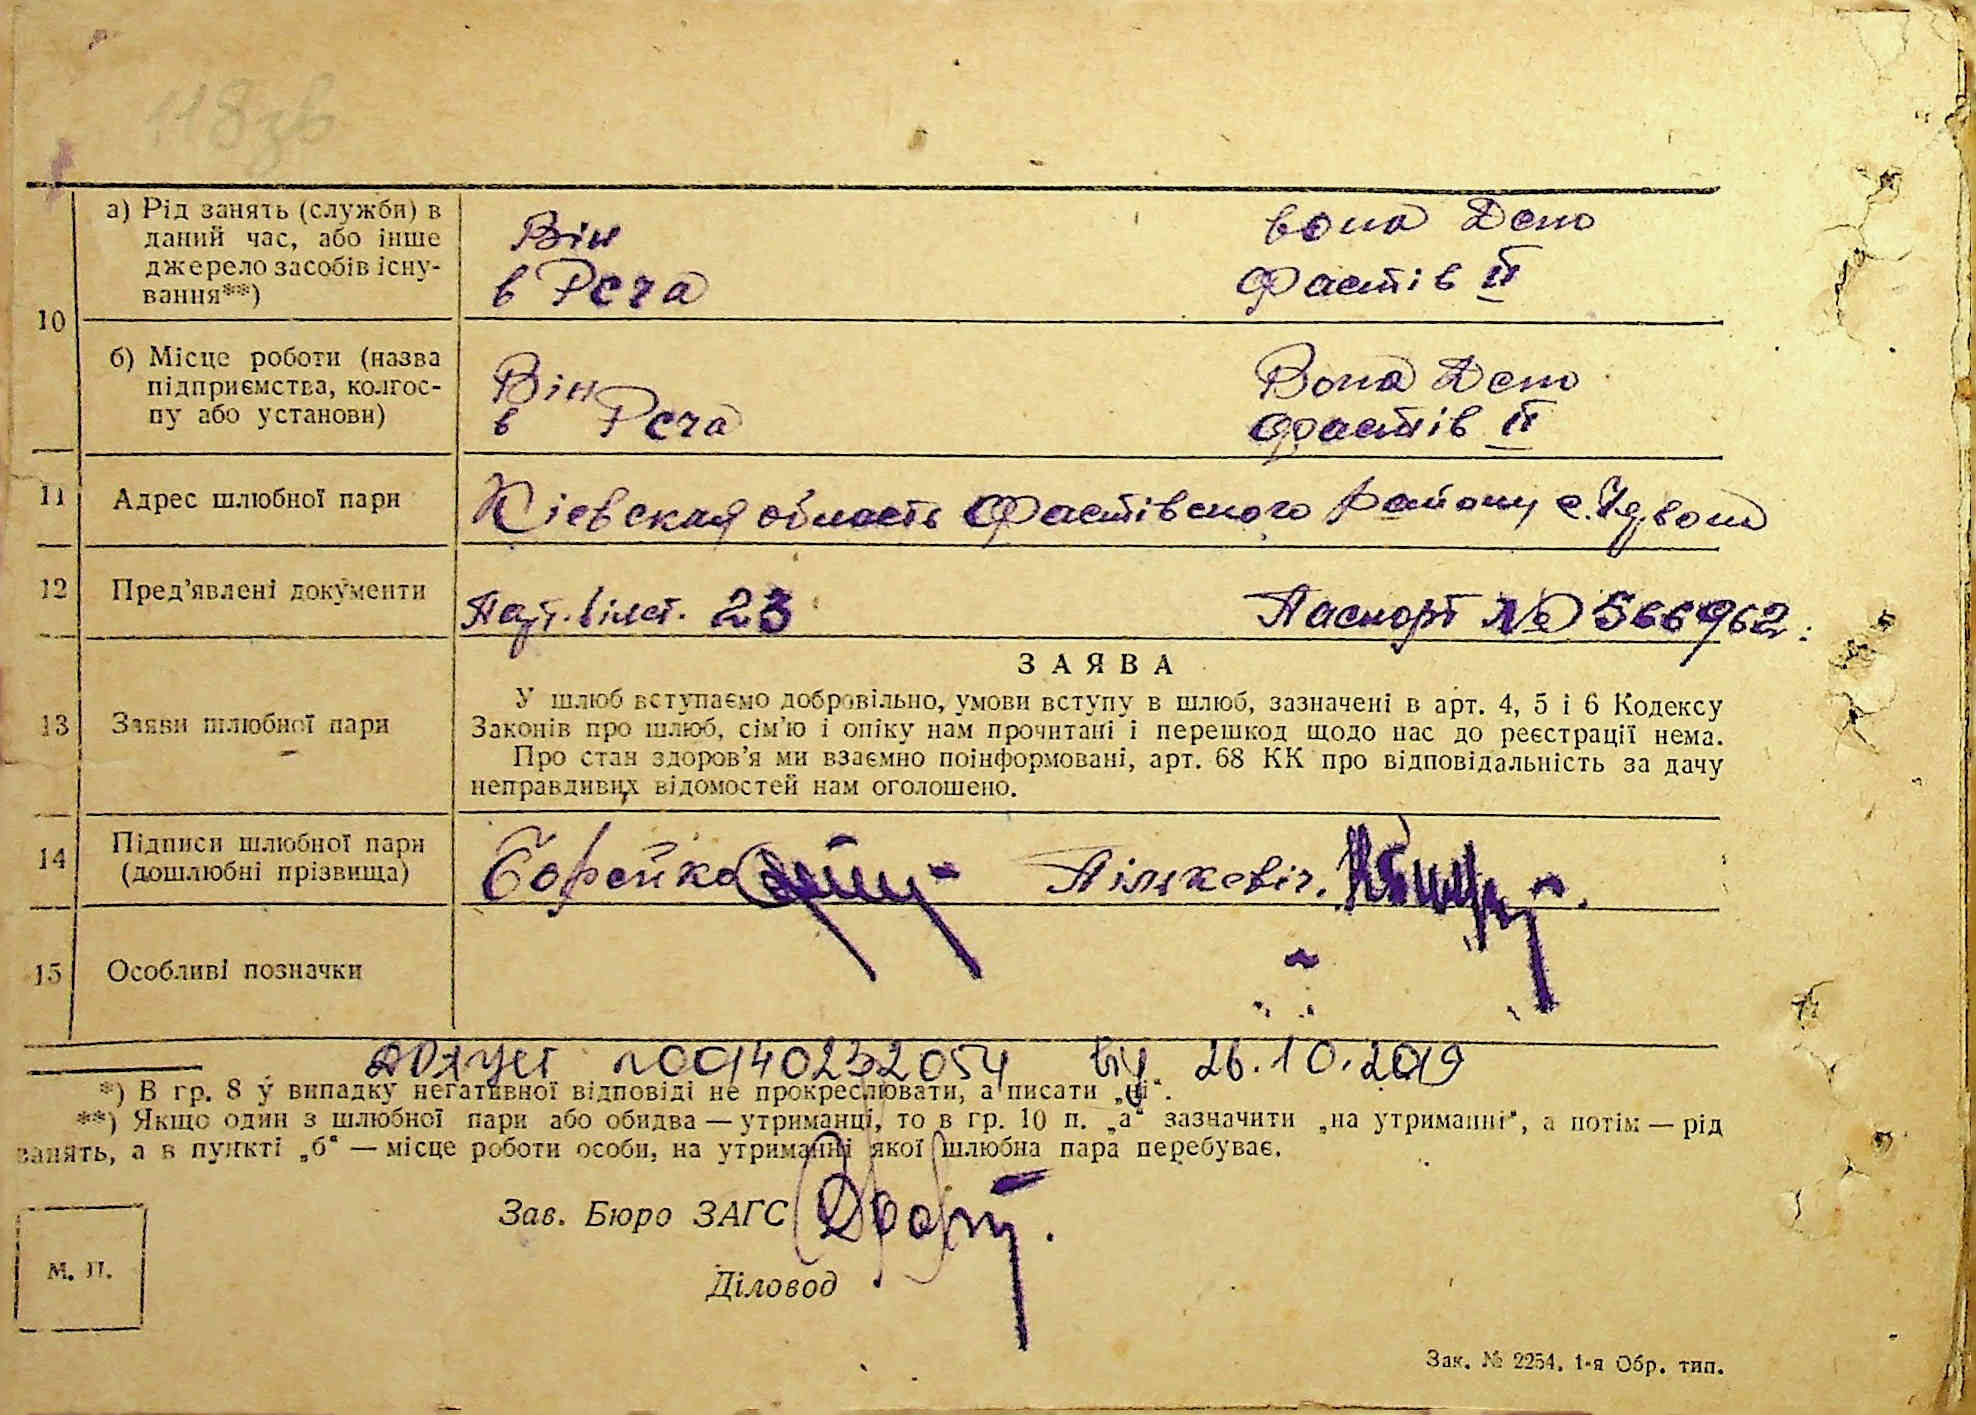 118зв
10
а) Рід занять (служби) в
даний час, або інше
джерело засобів існу-
вання**)
Він
в Рсча
вона Депо
Фастів II
б) Місце роботи (назва
підприємства, колгос-
пу або установи)
Він
в Рсча
Вона Депо
Фастів II
11
Адрес шлюбної пари
Кіевская область Фастівского району с.
12
Пред'явлені документи
білет. 23
Паспорт № 566962
13
Заяви шлюбної пари
ЗАЯВА
У шлюб вступаємо добровільно, умови вступу в шлюб, зазначені в арт. 4, 5 і 6 Кодексу
Законів про шлюб, сім'ю і опіку нам прочитані і перешкод щодо нас до реєстрації нема.
Про стан здоров'я ми взаємно поінформовані, арт. 68 КК про відповідальність за дачу
неправдивих відомостей нам оголошено.
14
Підписи шлюбної пари
(дошлюбні прізвища)
Борейко
Пількевіч.
15
Особливі позначки
№00140232054 від 26.10.2019
*) В гр. 8 у випадку негативної відповіді не прокреслювати, а писати „ні“.
**) Якщо один з шлюбної пари або обидва — утриманці, то в гр. 10 п. „а“ зазначити „на утриманні“, а потім — рід
занять, а в пункті „б“ — місце роботи особи, на утриманні якої шлюбна пара перебуває.
Зав. Бюро ЗАГС
Діловод
М. П.
Зак. № 2254. 1-я Обр. тип.